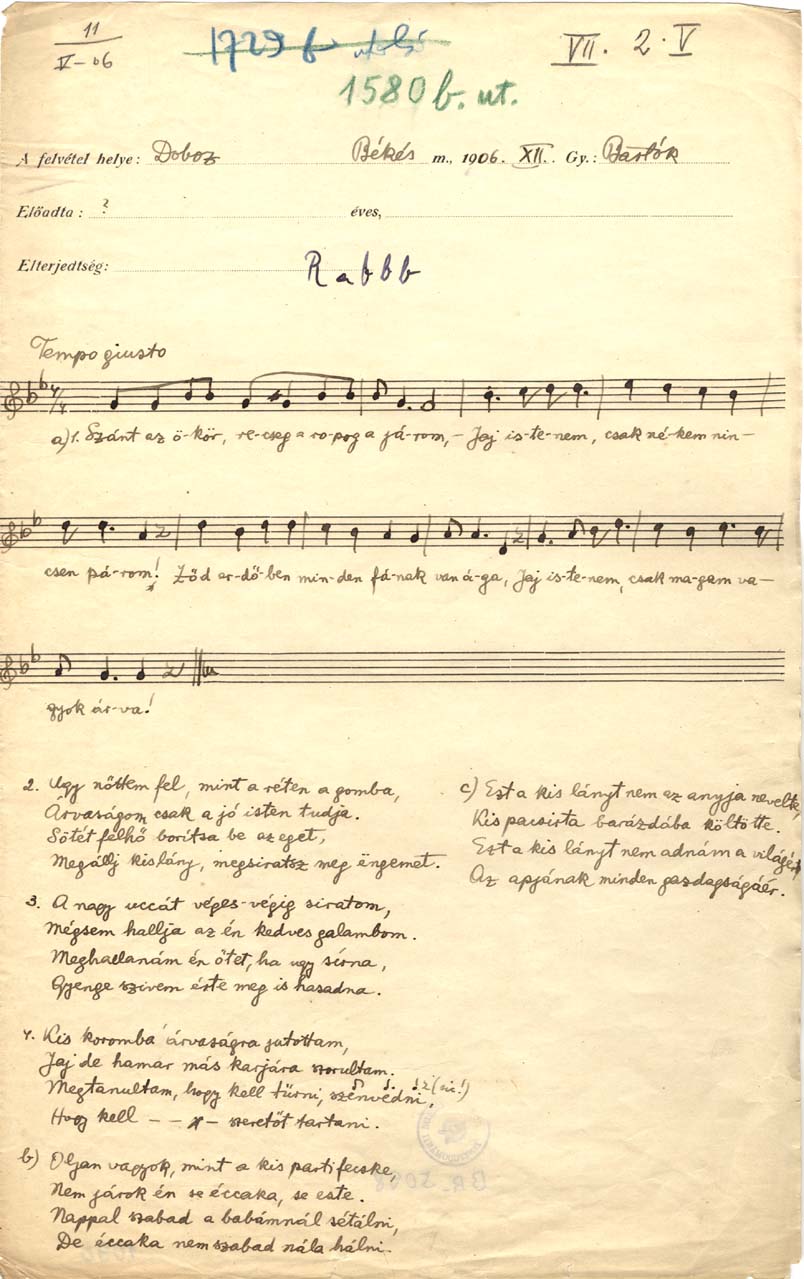 11
V-06
1729 f utolsó
VII. 2. V
1580 b. ut.
A felvétel helye: Doboz Békés m., 1906. XII. Gy.: Bartók
Előadta: ? éves,
Elterjedtség:
Rabbb
Tempo giusto
a) 1. Szánt az ö-kör, re-cseg a ro-pog a já-rom, – Jaj is-te-nem, csak né-kem nin-
csen pá-rom! Ződ er-dő-ben min-den fá-nak van á-ga, Jaj is-te-nem, csak ma-gam va-
gyok ár-va!
2. Ugy nőttem fel, mint a réten a gomba,
Árvaságom csak a jó isten tudja.
Sötét félhő borítsa be az eget,
Megállj kislány, megsiratsz még éngemet.
3. A nagy uccát véges-végig siratom,
Mégsem hallja az én kedves galambom.
Meghallanám én őtet, ha ugy sírna,
Gyenge szivem érte meg is hasadna.
4. Kis koromba árvaságra jutottam,
Jaj de hamar más karjára szorultam.
Megtanultam, hogy kell tűrni, szenvedni, (sic!)
Hogy kell – – – szeretőt tartani.
b) Oljan vagyok, mint a kis partifecske,
Nem járok én se éccaka, se este.
Nappal szabad a babámnál sétálni,
De éccaka nem szabad nála hálni.
c) Ezt a kis lányt nem az anyja nevelte,
Kis pacsirta barázdába költötte.
Ezt a kis lányt nem adnám a világér,
Az apjának minden gazdagságáér.